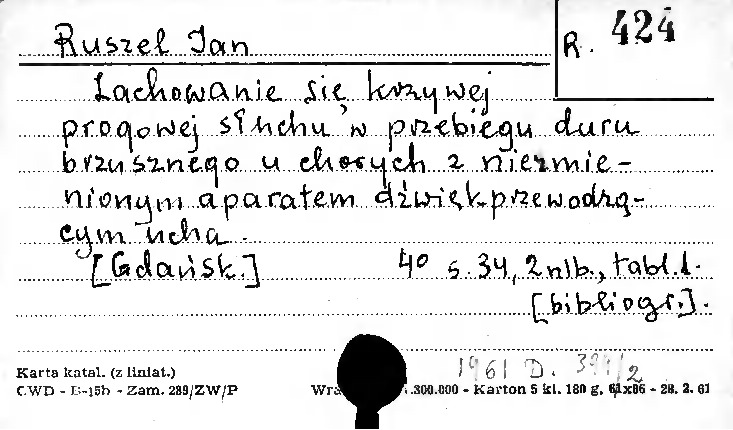 Ruszel Jan
R. 424
Zachowanie się krzywej
progowej słuchu w przebiegu duru
brzusznego u chorych z niezmie-
nionym aparatem dźwiękprzewodzą-
cym ucha.
[Gdańsk.] 4° s. 34, 2 nlb., tabl. 1.
[bibliogr.].
1961 D. 394/2
Karta katal. (z liniat.)
CWD - B-15b - Zam. 289/ZW/P .300.000 - Karton 5 kl. 180 g, 61x86 - 28. 2. 61